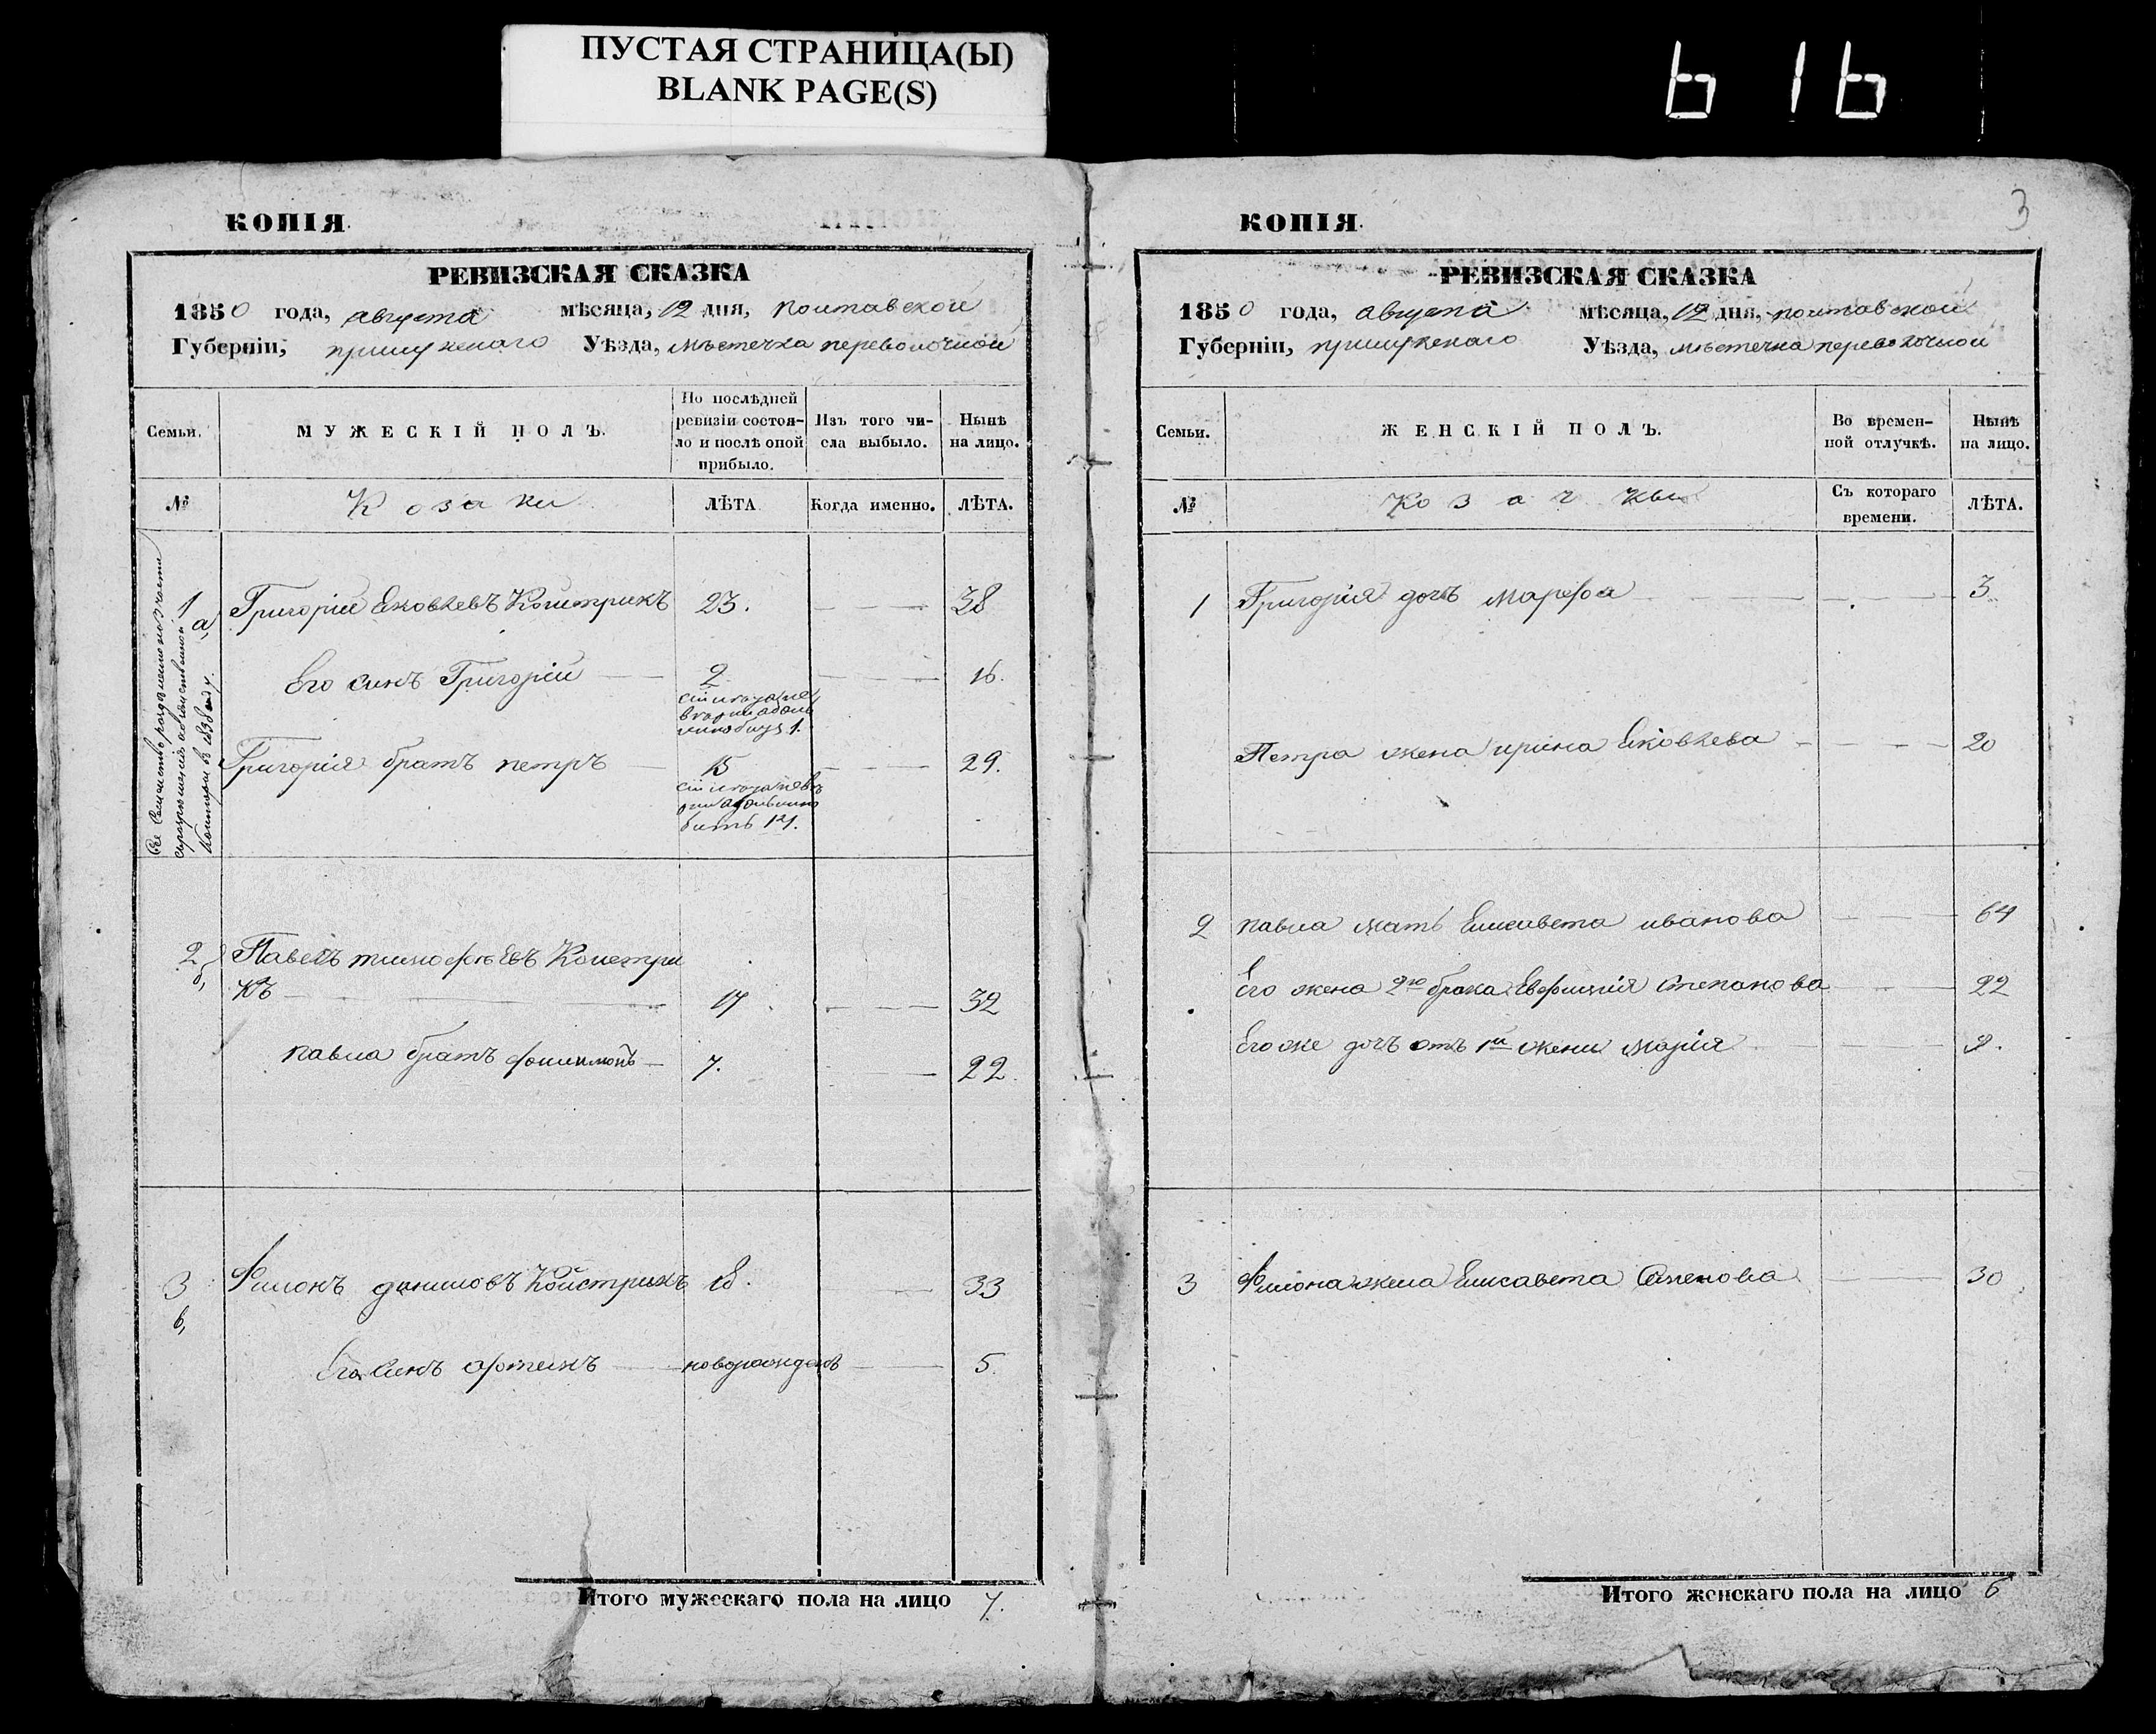 ПУСТАЯ СТРАНИЦА(Ы)
BLANK PAGE(S)
КОПІЯ.
РЕВИЗСКАЯ СКАЗКА
1850 года, августа мѣсяца, 12 дня, полтавской
Губерніи, прилуцкаго Уѣзда, мѣстечка переволочной
Семьи.
МУЖЕСКІЙ ПОЛЪ.
По послѣдней ревизіи состоя-
ло и послѣ оной прибыло.
Изъ того чи-
сла выбыло.
Нынѣ
на лицо.
№
Козаки
ЛѢТА
Когда именно.
ЛѢТА.
1 а, Григорій Яковлевъ Койстрикъ 23. 38
Его синъ Григорій 2 16.
Григорія братъ петръ 15 29.
2 б, Павелъ тимофѣевъ Коистри
къ 17 32
павла братъ филимонъ 7. 22
3 в, Филонъ даниловъ Койстрикъ 18. 33
Его синъ артемъ новорожденъ 5.
Итого мужескаго пола на лицо 7.
3
КОПІЯ.
РЕВИЗСКАЯ СКАЗКА
1850 года, августа мѣсяца, 12 дня, полтавской
Губерніи, прилуцкаго Уѣзда, мѣстечка переволочной
Семьи.
ЖЕНСКІЙ ПОЛЪ.
Во времен-
ной отлучкѣ.
Нынѣ
на лицо.
№
Козачки
Съ котораго
времени.
ЛѢТА.
1 Григорія дочъ марфа 3
Петра жена ирина Яковлева 20
2 павла мать Елисавета иванова 64
Его жена 2го брака Евфимія Степанова 22
Его же дочъ отъ 1й жени марія 9.
3 Филона жена Елисавета Семенова 30
Итого женскаго пола на лицо 6